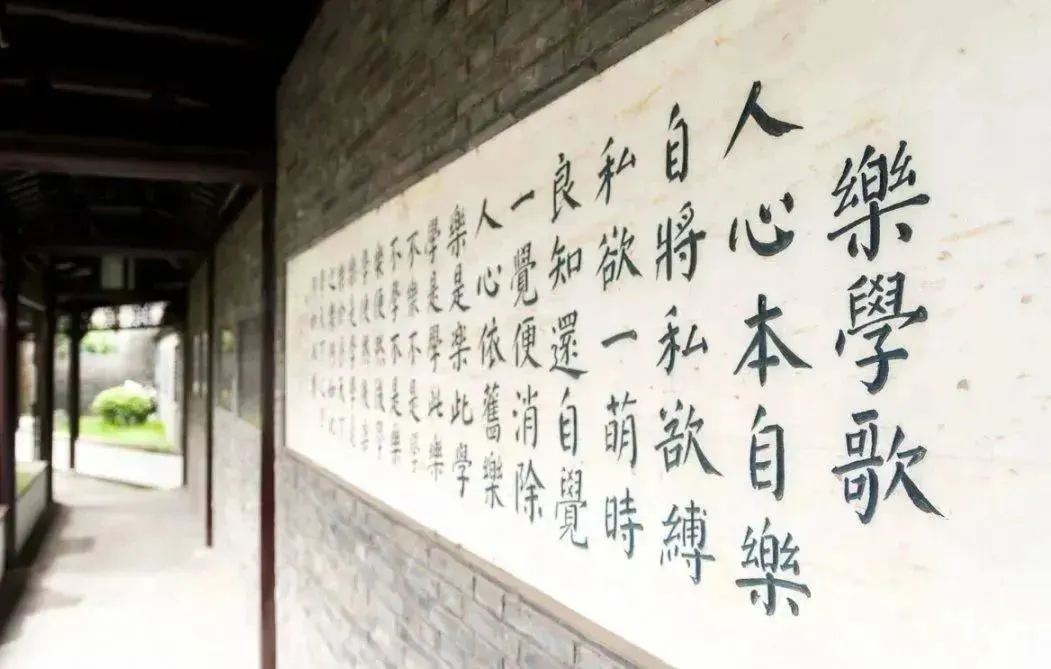 樂學歌
人心本自樂
自將私欲縛
私欲一萌時
良知還自覺
一覺便消除
人心依舊樂
樂是樂此學
學是學此樂
不樂不是學
不學不是樂
樂便然後學
學便然後樂